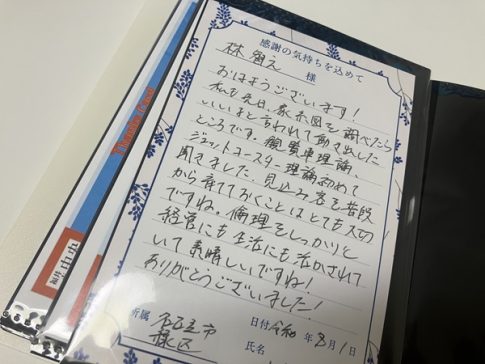 感謝の気持ちを込めて
林 智之 様
おはようございます!
私も先日、家系図を調べたら
いいよと言われて動き出した
ところです。観覧車理論、
ジェットコースター理論初めて
聞きました。見込み客を普段
から育てておくことはとても大切
ですね。倫理をしっかりと
経営にも生活にも活かされて
いて素晴しいですね!
ありがとうございました!
所属 名古屋市 日付 令和 年 8月1日
緑区 氏名
Thanks Card